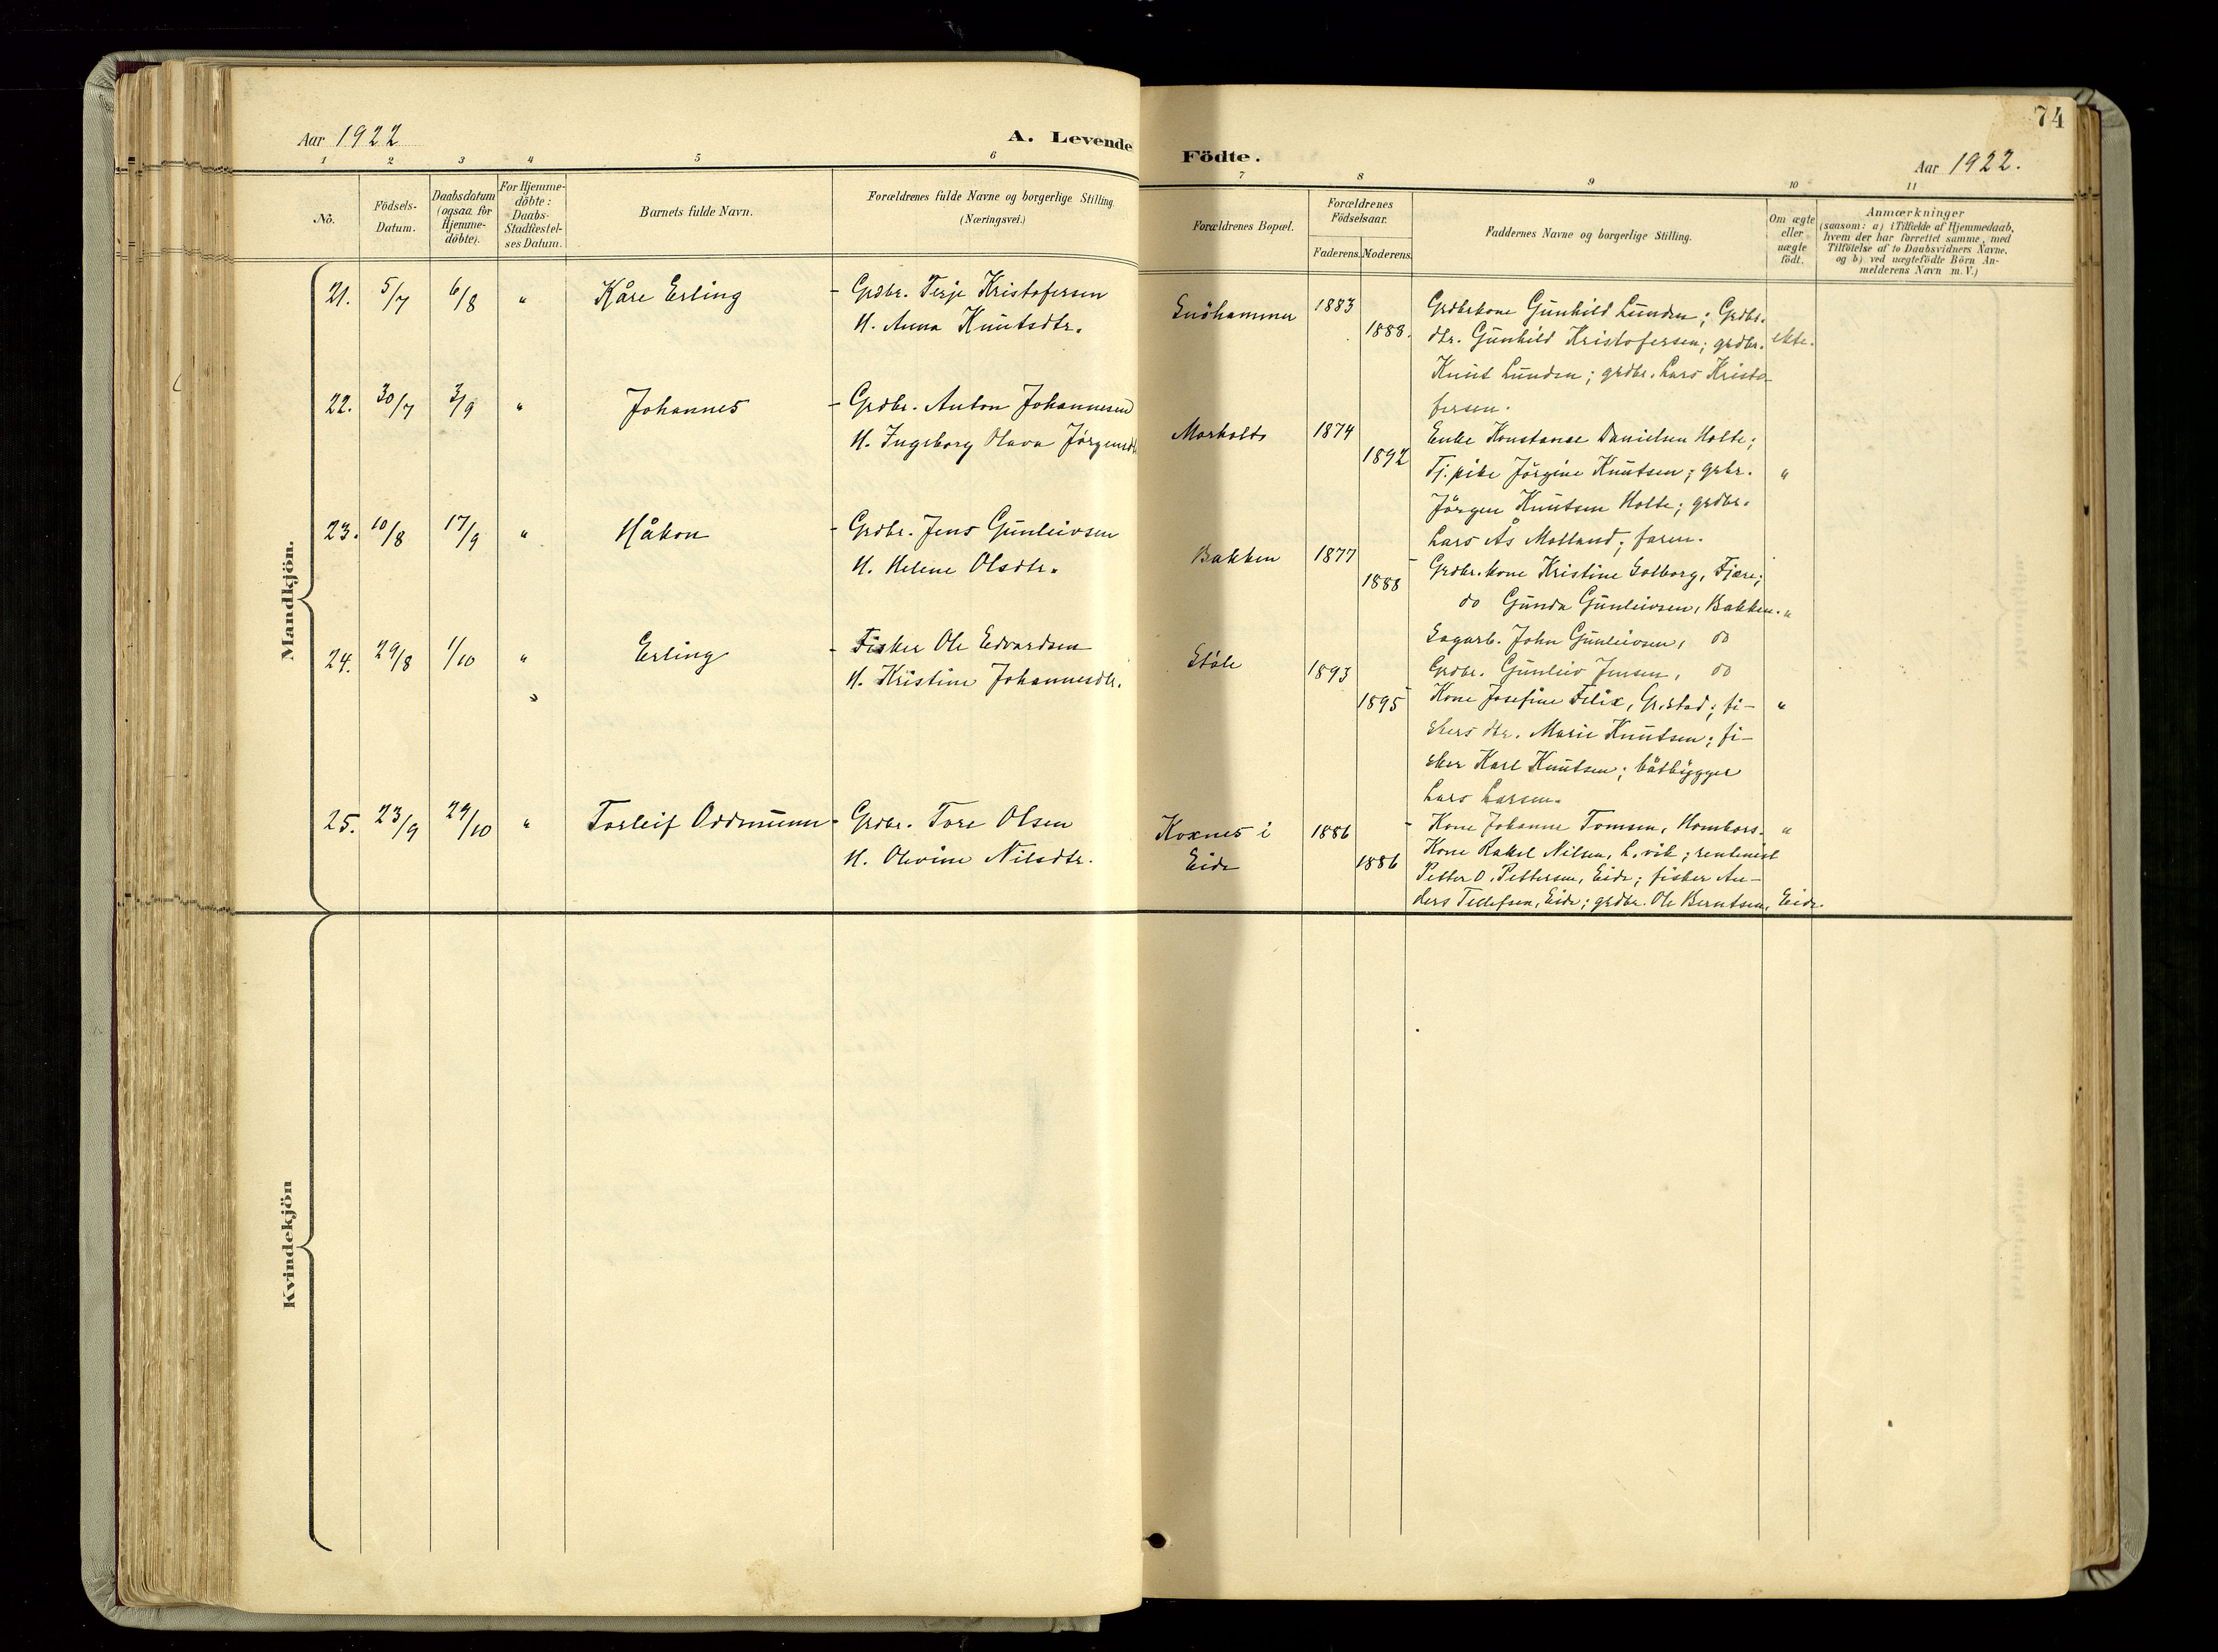 74
Aar 1922
A. Levende Födte.
Aar 1922.
1 2 3 4 5 6 7 8 9 10 11
No.
Födsels-
Datum.
Daabsdatum
(ogsaa for
Hjemme-
döbte).
For Hjemme-
döbte:
Daabs-
Stadfæstel-
ses Datum.
Barnets fulde Navn.
Forældrenes fulde Navne og borgerlige Stilling
(Næringsvei.)
Forældrenes Bopæl.
Forældrenes
Födselsaar.
Faderens. Moderens.
Faddernes Navne og borgerlige Stilling.
Om ægte
eller
uægte
födt.
Anmærkninger
(saasom: a) i Tilfælde af Hjemmedaab,
hvem der har forrettet samme, med
Tilföielse af to Daabsvidners Navne,
og b) ved uægtefödte Börn An-
melderens Navn m. V.)
Mandkjön.
21. 5/7 6/8 " Kåre Erling - Grdbr. Terje Kristofersen
H. Anna Knutsdtr.
Snöhammer 1883
1888.
Grdbrkone Gunhild Lunden; Grdbr.
dtr. Gunhild Kristofersen; grdbr. ekte.
Knut Lunden; grdbr. Lars Kristo-
fersen.
22. 30/7 3/9 " Johannes - Grdbr. Anton Johannesen
H. Ingeborg Olava Jörgensdt
Morholt 1874
1892
Enke Konstanse Danielsen Holte;
Tj.pike Jörgine Knutsen; grbr. "
Jörgen Knutsen Holte; grdbr.
Lars Ås Molland; faren.
23. 10/8 17/9 " Håkon - Grdbr. Jens Gunleivsen
H. Helene Olsdtr.
Bakken 1877
1888
Grdbr.kone Kristine Solborg, Fjære;
do Gunda Gunleivsen, Bakken. "
Sagarb. John Gunleivsen, do
Grdbr. Gunleiv Jensen, do
24. 29/8 1/10 " Erling - Fisker Ole Edvardsen
H. Kristine Johannesdtr.
Stöle 1893
1895
Kone Josefine Felix, Gr.stad; fi- "
skers dtr. Marie Knutsen; fi-
sker Karl Knutsen; båtbygger
Lars Larsen.
25. 23/9 29/10 " Torleif Oddmunn - Grdbr. Tore Olsen
H. Olevine Nilsdtr.
Koxnes i
Eide
1886
1886
Kone Johanne Tomsen, Hombors. "
Kone Rakel Nilsen, L.vik; rentenist
Petter O. Pettersen, Eide; fisker An-
ders Tellefsen, Eide; grdbr. Ole Berntsen, Eide.
Kvindekjön